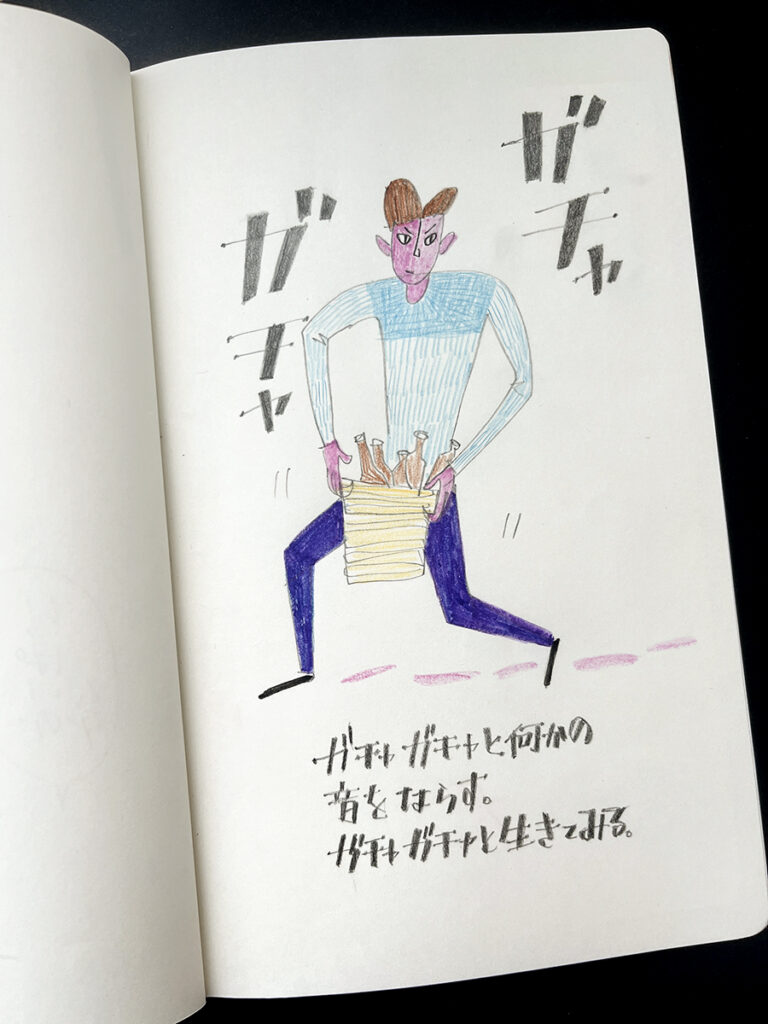 ガチャ
ガチャ
ガチャガチャと何かの
音をならす。
ガチャガチャと生きてみる。